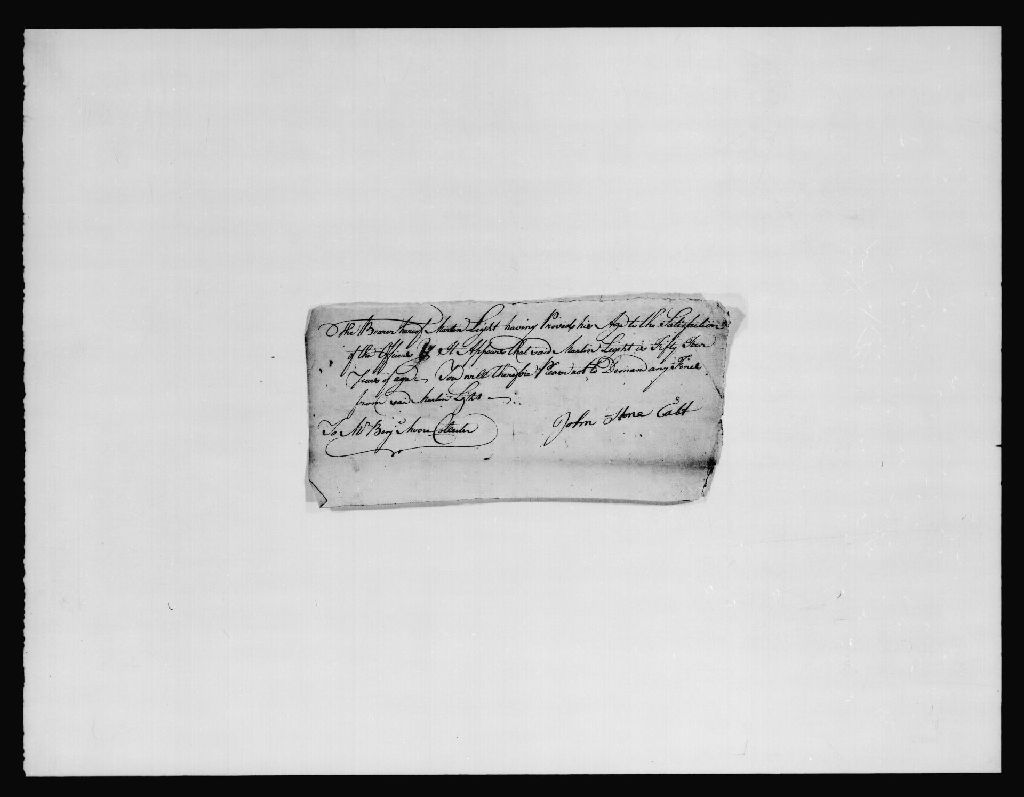 The Bearer hereof Martin Light having Proved his Age to the Satisfaction
of the Officers It Appears that said Martin Light is Fifty Four
Years of age — You will Therefore Please not to Demand any Fines
from said Martin Light —
To Mr Benjn Moore Collector
John Stone Capt